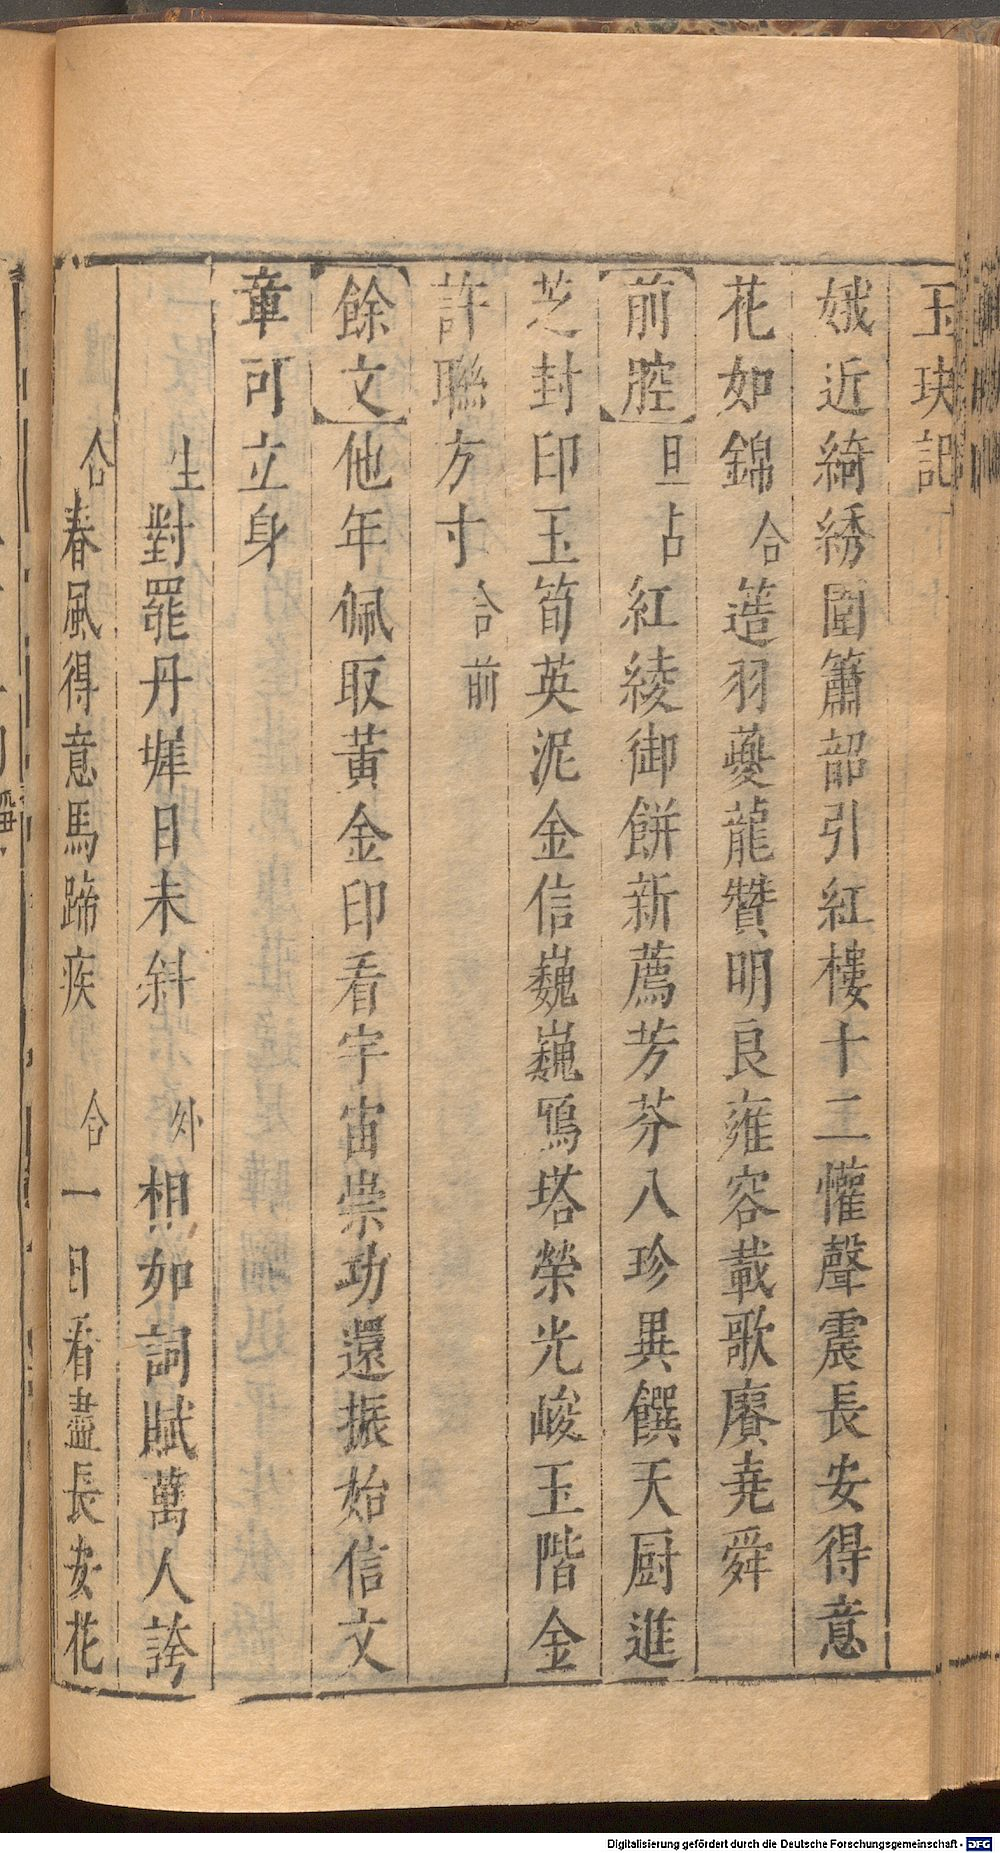 玉玦記
娥近綺綉圍簫韶引紅樓十二懽聲震長安得意
花如錦合簉羽夔龍贊明良雍容載歌賡堯舜
前腔旦占紅綾御餅新薦芳芬八珍異饌天厨進
芝封印玉筍英泥金信巍巍鴈塔榮光峻玉階金
許聯方寸合前
餘文他年佩取黃金印看宇宙崇功還振始信文
章可立身
生對罷丹墀日未斜外相如詞賦萬人誇
合春風得意馬蹄疾合一日看盡長安花
Digitalisierung gefördert durch die Deutsche Forschungsgemeinschaft - DFG